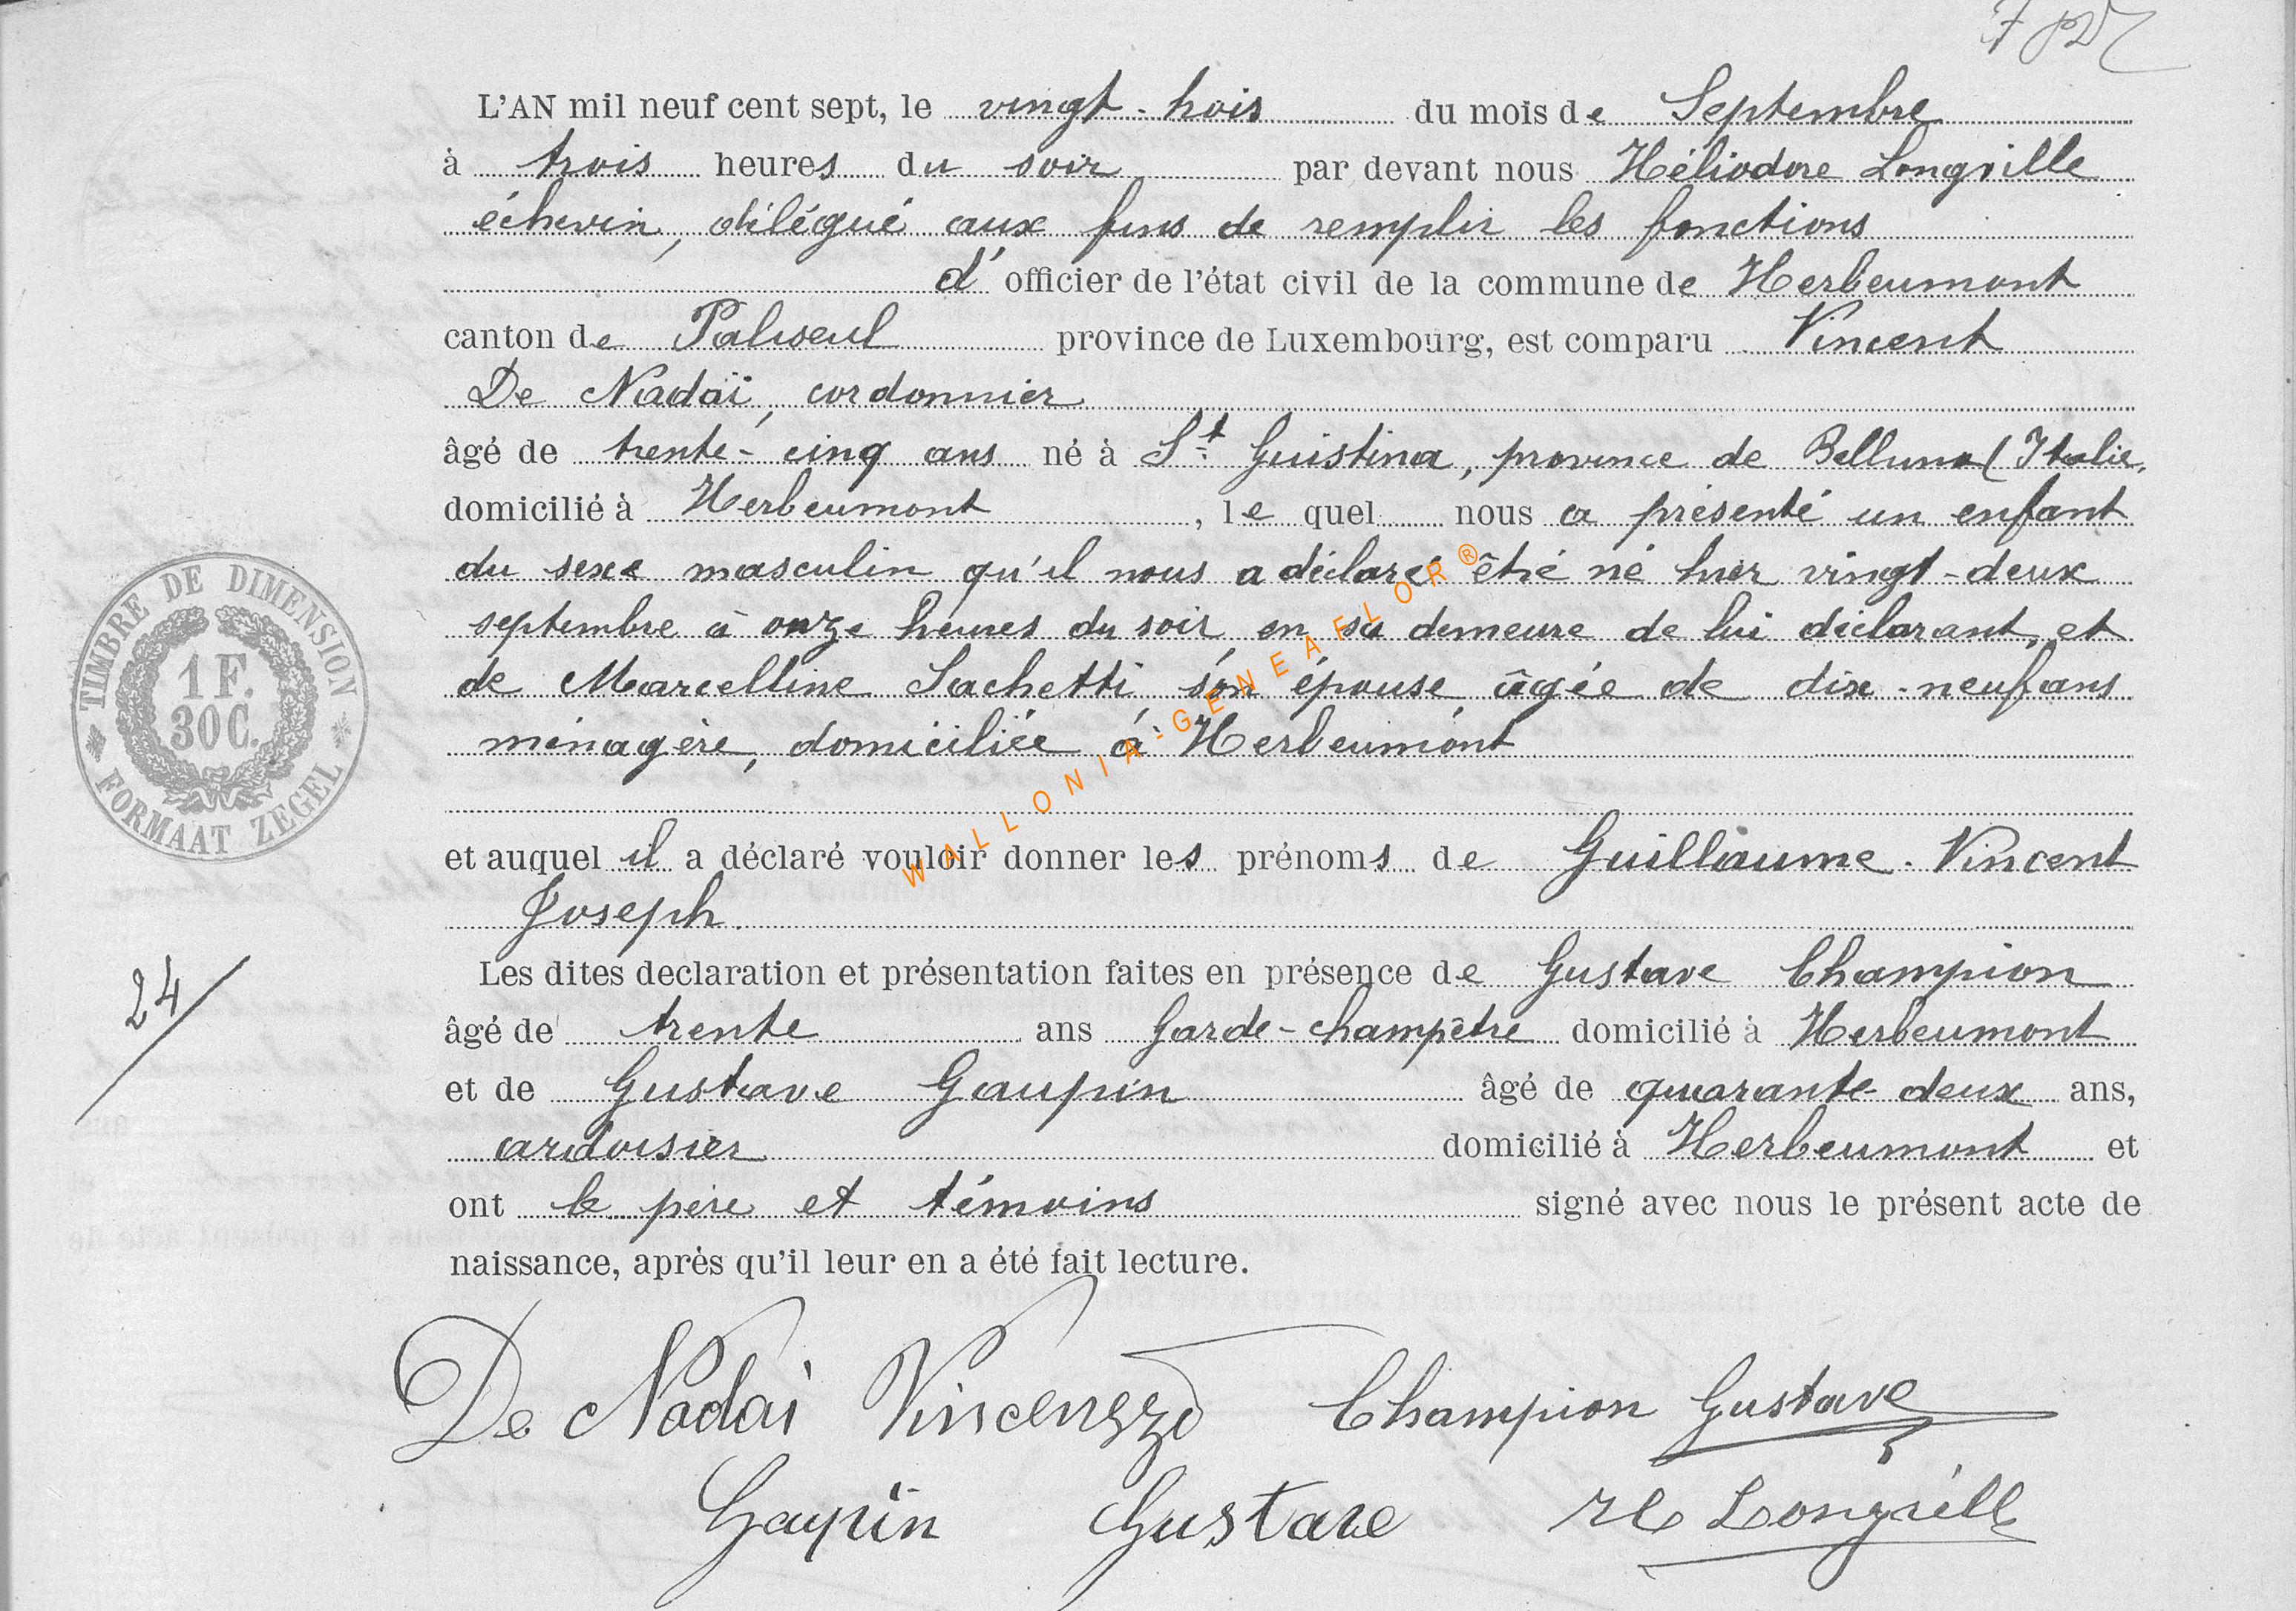 L'AN mil neuf cent sept, le vingt-trois du mois de Septembre
à trois heures du soir par devant nous Héliodore Longville
échevin, délégué aux fins de remplir les fonctions
d'officier de l'état civil de la commune de Herbeumont
canton de Paliseul province de Luxembourg, est comparu Vincent
De Nadaï, cordonnier
âgé de trente-cinq ans né à St Guistina, province de Belluno (Italie,
domicilié à Herbeumont, le quel nous a présenté un enfant
du sexe masculin qu'il nous a déclaré être né hier vingt-deux
septembre à onze heures du soir en sa demeure de lui déclarant, et
de Marcelline Sachetti, son épouse, âgée de dix-neuf ans
ménagère, domiciliée à Herbeumont
et auquel il a déclaré vouloir donner les prénoms de Guillaume-Vincent
Joseph.
Les dites declaration et présentation faites en présence de Gustave Champion
âgé de trente ans Garde-champêtre domicilié à Herbeumont
et de Gustave Gaupin âgé de quarante-deux ans,
ardoisier domicilié à Herbeumont et
ont le père et témoins signé avec nous le présent acte de
naissance, après qu'il leur en a été fait lecture.
De Nadai Vincenzo Champion Gustave
Gaupin Gustave H Longville
TIMBRE DE DIMENSION
1 F.
30 C.
FORMAAT ZEGEL
24
WALLONIA-GENEAFLOR®